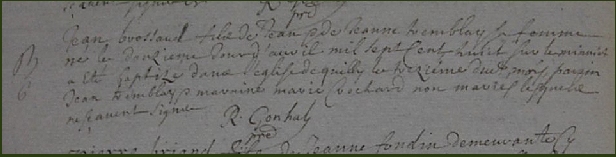 R
pre
Jean brossaud fils de Jean & de Jeanne tremblay sa femme
né le douzieme Jour d'avril mil sept cent huict sur le minuict
a eté baptizé dans l'eglise de quilly le trezième dud mois parain
Jean tremblay maraine marie brochard non mariés lesquels
ne scavent signer
B
6
R. Gouhal
pre
pierre fils de Jeanne fondin demeurante